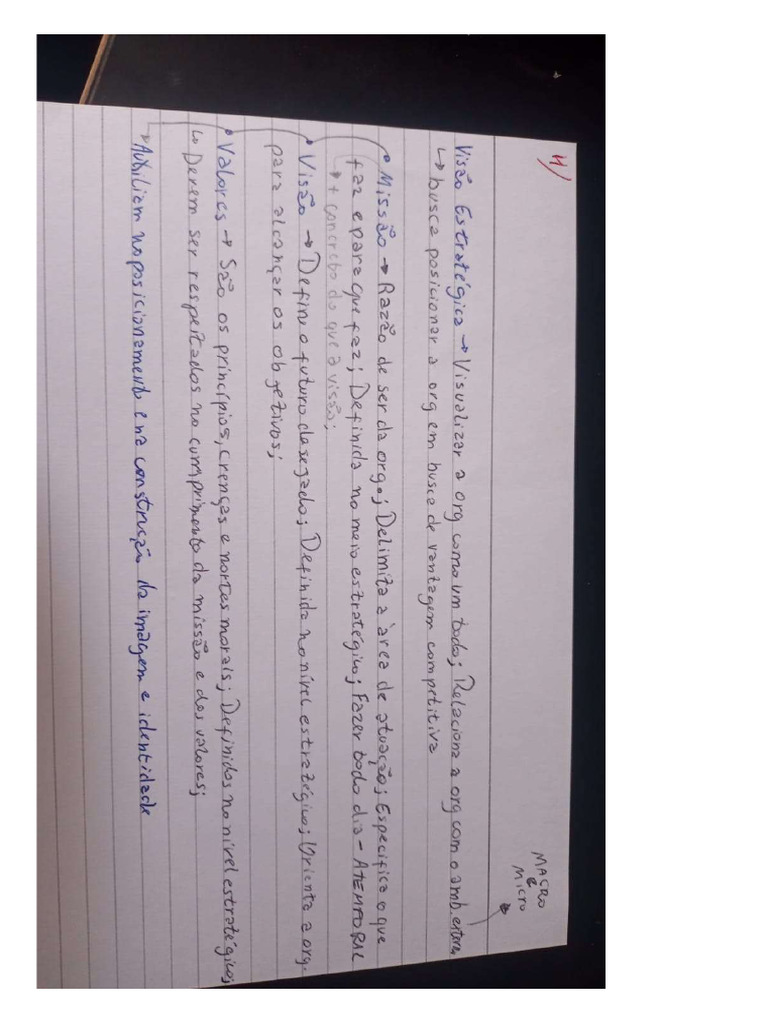 4/
MACRO
e
MICRO
Visão Estratégica → Visualizar a org como um todo; Relaciona a org com o amb. extern.
↳ busca posicionar a org em busca de vantagem competitiva
• Missão → Razão de ser da org.; Delimita a área de atuação; Especifica o que
faz e para que faz; Definida no meio estratégico; Fazer todo dia - ATEMPORAL
↳ + concreto do que a visão;
• Visão → Define o futuro desejado; Definida no nível estratégico; Orienta a org.
para alcançar os objetivos;
• Valores → São os princípios, crenças e nortes morais; Definidos no nível estratégico;
↳ Devem ser respeitados no cumprimento da missão e dos valores;
* Auxiliam no posicionamento e na construção da imagem e identidade